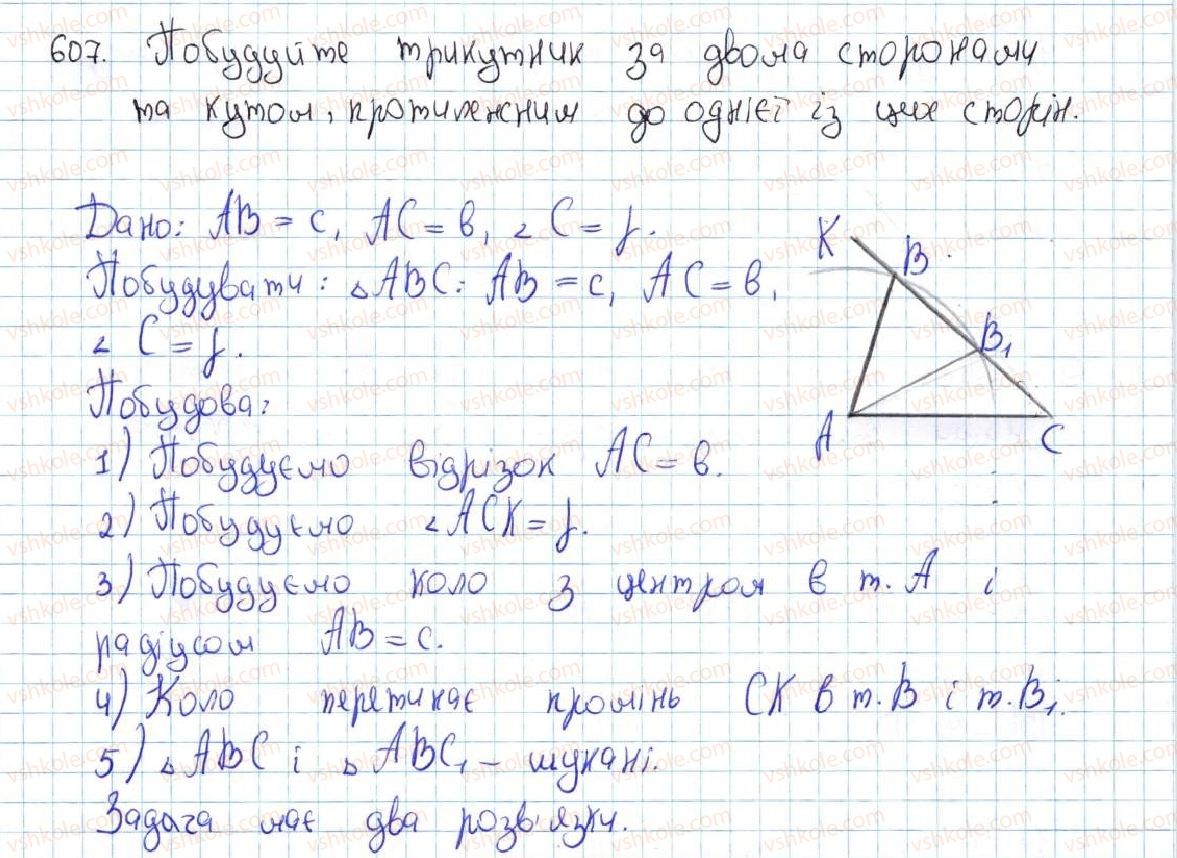 607. Побудуйте трикутник за двома сторонами
та кутом, протилежним до однієї із цих сторін.
Дано: AB = c, AC = b, ∠ C = γ.
Побудувати: △ABC: AB = c, AC = b,
∠ C = γ.
Побудова:
1) Побудуємо відрізок AC = b.
2) Побудуємо ∠ACK = γ.
3) Побудуємо коло з центром в т. A і
радіусом AB = c.
4) Коло перетинає промінь CK в т. B і т. B₁.
5) △ABC і △ABC₁ – шукані.
Задача має два розв'язки.
K
B
B₁
A
C
vshkole.com